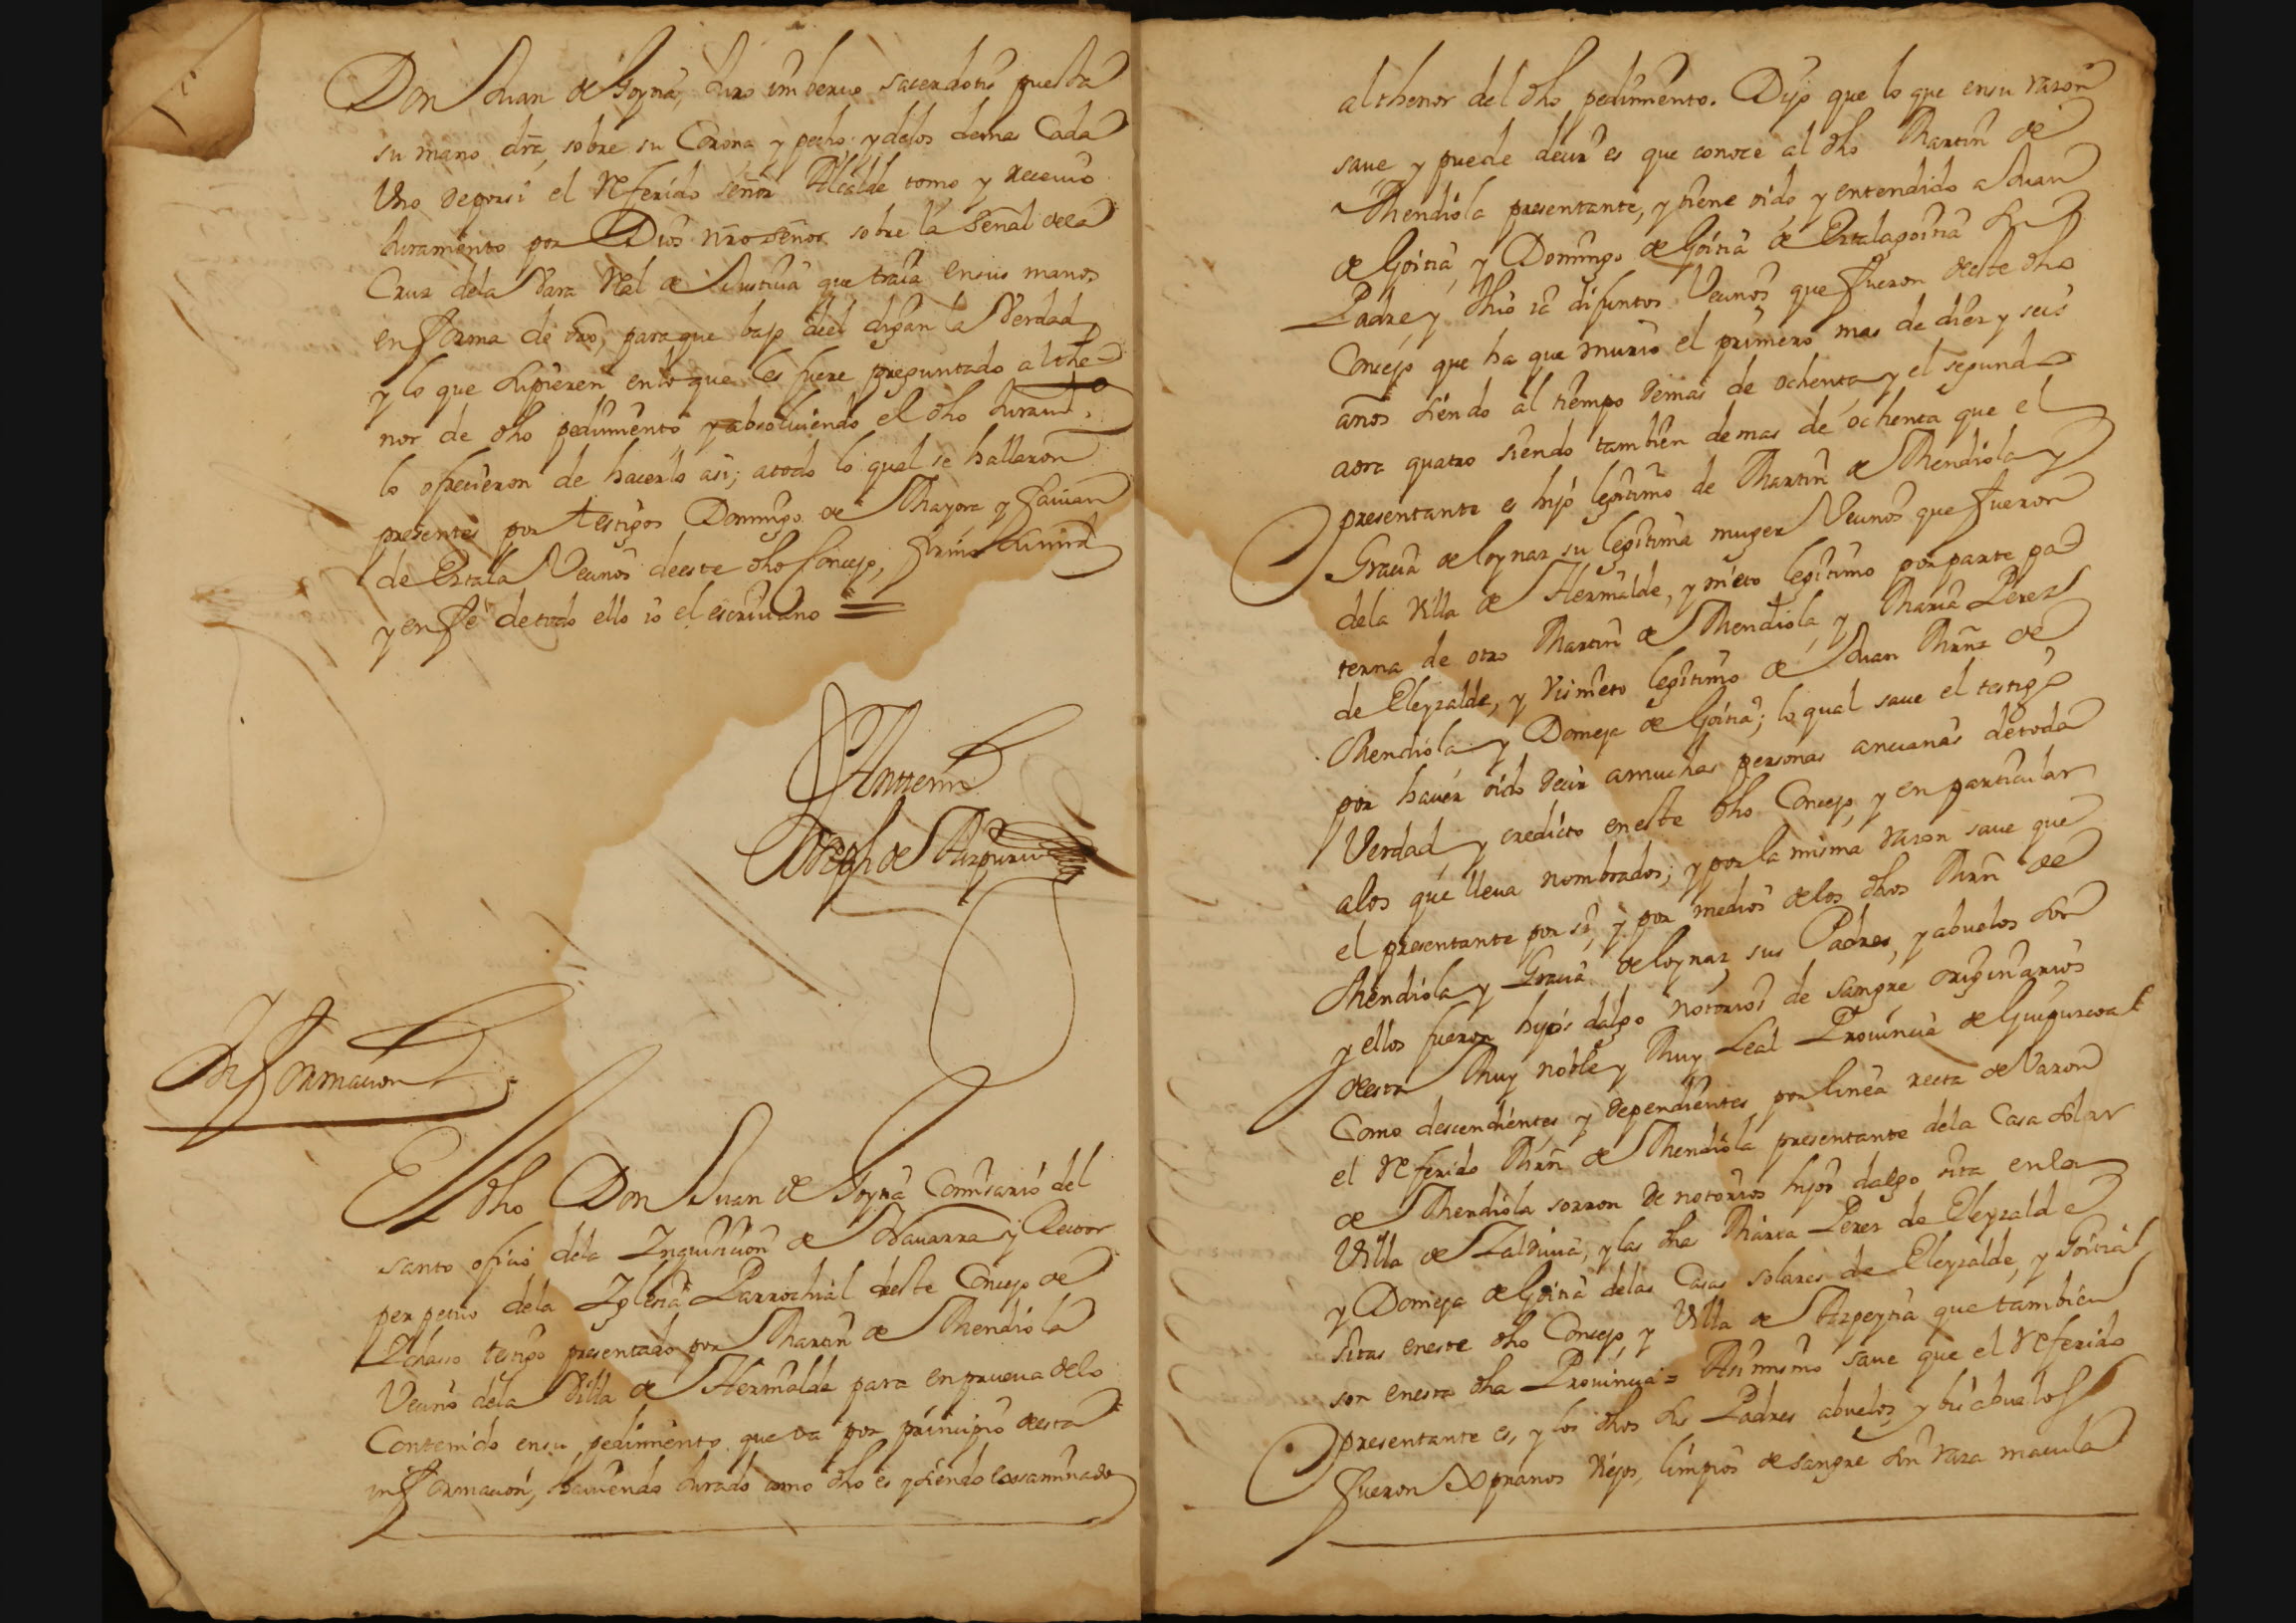 Don Juan de Goyna, Juro im berbo sacerdotis puesta
su mano dra, sobre su Corona y pecho, y delos demas Cada
Uno de porsi el Referido señor Alcalde tomo y recevio
Juramento por Dios nro señor sobre la señal dela
Cruz dela Vara Rl de Justicia que traia en sus manos
en forma de dro, para que bajo deel digan la Verdad
y lo que supieren enlo que les fuere preguntado al the-
nor de dho pedimento, y absolviendo el dho Juramto
lo ofrecieron de hacerlo asi; atodo lo qual se hallaron
presentes por testigos Domingo de Mayora y
de Ertala Vecinos deeste dho Concejo, firmo
y en fe de todo ello io el escrivano =
Antemi
Joseph de Aizpurua
Informacion
El dho Don Juan de Goyna Comisario del
santo oficio dela Inquisicion de Navarra y Rector
perpetuo dela Iglesia Parrochial deste Concejo de
testigo presentado por Martin de Mendiola
Vecino dela Villa de Hernialde para en prueva delo
Contenido ensu pedimiento que va por principio desta
informacion, haviendo Jurado como dho es y siendo exsaminado
al thenor del dho pedimento. Dijo que lo que ensu razon
save y puede decir es que conoce al dho Martin de
Mendiola presentante, y tiene oido y entendido a Juan
de Goitia, y Domingo de Goitia de Ertalagoitia su
Padre y thio ia difuntos Vecinos que fueron deste dho
Concejo que ha que murio el primero mas de diez y seis
años siendo al tiempo demas de ochenta y el segundo
aora quatro siendo tambien de mas de ochenta que el
presentante es hijo legitimo de Martin de Mendiola y
Gracia de loynaz su legitima muger Vecinos que fueron
dela Villa de Hernialde, y nieto legitimo por parte pa
terna de otro Martin de Mendiola, y Maria Perez
de Eleyzalde, y Visnieto legitimo de Juan Mrnz de
Mendiola y Domeja de Goitia; lo qual save el testigo
por haver oido decir amuchas personas ancianas detoda
Verdad, y credito eneste dho Concejo, y en particular
alos que lleva nombrados; y por la misma razon save que
el presentante por si, y por medios delos dhos Mrn de
Mendiola y Gracia de loynaz sus Padres, y abuelos son
y ellos fueron hijos dalgo notorios de sangre originarios
deesta Muy noble y Muy Leal Provincia de Guipuzcoa
Como descendientes y dependientes por linea recta de Varon
el Referido Mrn de Mendiola presentante dela Casa solar
de Mendiola sorron de notorios hijos dalgo sita enla
Villa de Zaldivia, y las dha Maria Perez de Eleyzalde
y Domeja de Goitia delas Casas solares de Eleyzalde, y Goitia
sitas eneste dho Concejo, y Villa de Azpeytia que tambien
son enesta dha Provincia = Asimismo save que el Referido
presentante es, y los dhos sus Padres abuelos, y bisabuelos
fueron Xpianos Viejos, limpios de sangre sin raza macula